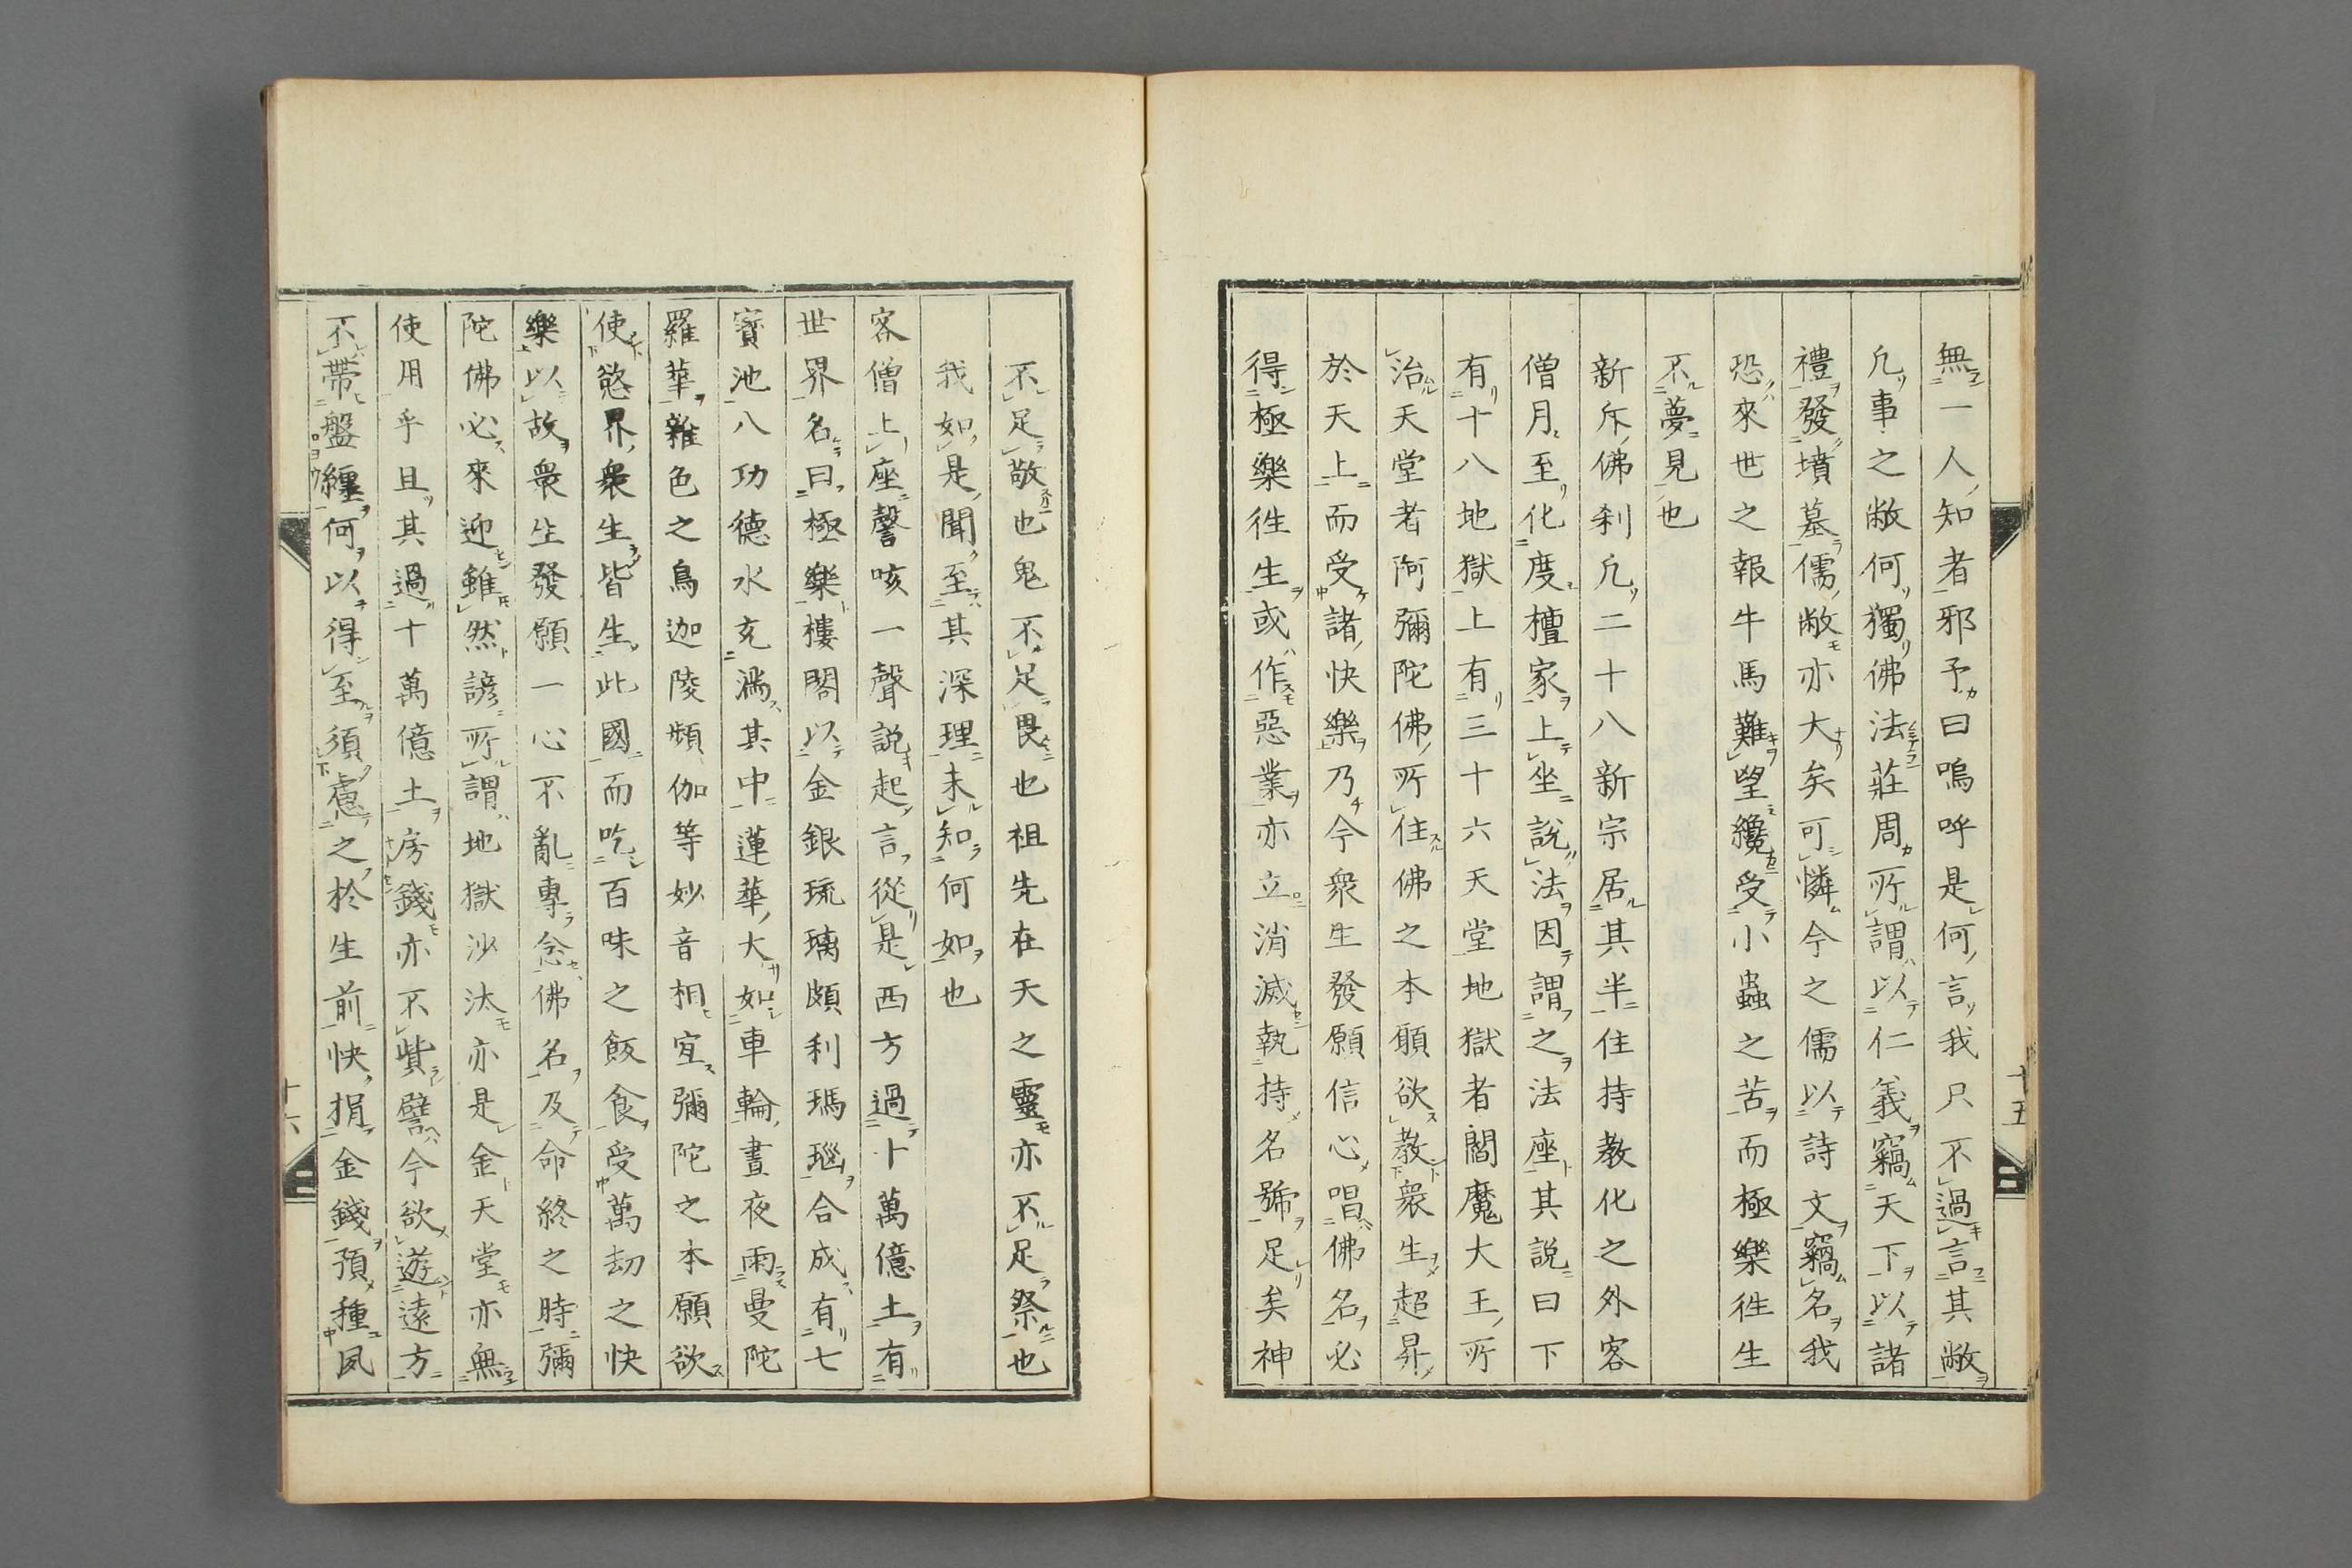 無一人知者邪予曰嗚呼是何言我只不過言其敝
凢事之敝何獨佛法莊周所謂以仁義竊天下以諸
禮發墳墓儒敝亦大矣可憐今之儒以詩文竊名我
恐來世之報牛馬難望纔受小蟲之苦而極樂徃生
不夢見也
新斥佛刹凢二十八新宗居其半住持教化之外客
僧月至化度檀家上坐說法因謂之法座其說曰下
有十八地獄上有三十六天堂地獄者閻魔大王所
治天堂者阿彌陀佛所住佛之本願欲教衆生超昇
於天上而受諸快樂乃今衆生發願信心唱佛名必
得極樂徃生或作惡業亦立消滅執持名號足矣神
十五
不足敬也鬼不足畏也祖先在天之靈亦不足祭也
我如是聞至其深理未知何如也
客僧上座謦咳一聲說起言從是西方過十萬億土有
世界名曰極樂樓閣以金銀琉璃頗利瑪瑙合成有七
寶池八功德水充滿其中蓮華大如車輪晝夜雨曼陀
羅華雜色之鳥迦陵頻伽等妙音相宜彌陀之本願欲
使慾界衆生皆生此國而吃百味之飯食受萬劫之快
樂以故衆生發願一心不亂專念佛名及命終之時彌
陀佛必來迎雖然諺所謂地獄沙汰亦是金天堂亦無
使用乎且其過十萬億土房錢亦不貲譬今欲遊遠方
不帶盤纏何以得至須慮之於生前快捐金錢預種夙
十六